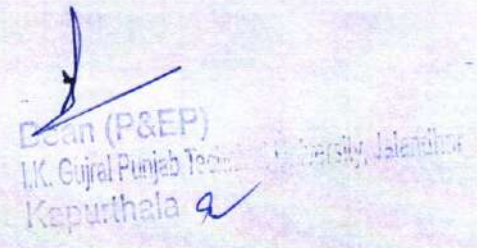 Dean (P&EP)
I.K. Gujral Punjab Technical University, Jalandhar
Kapurthala